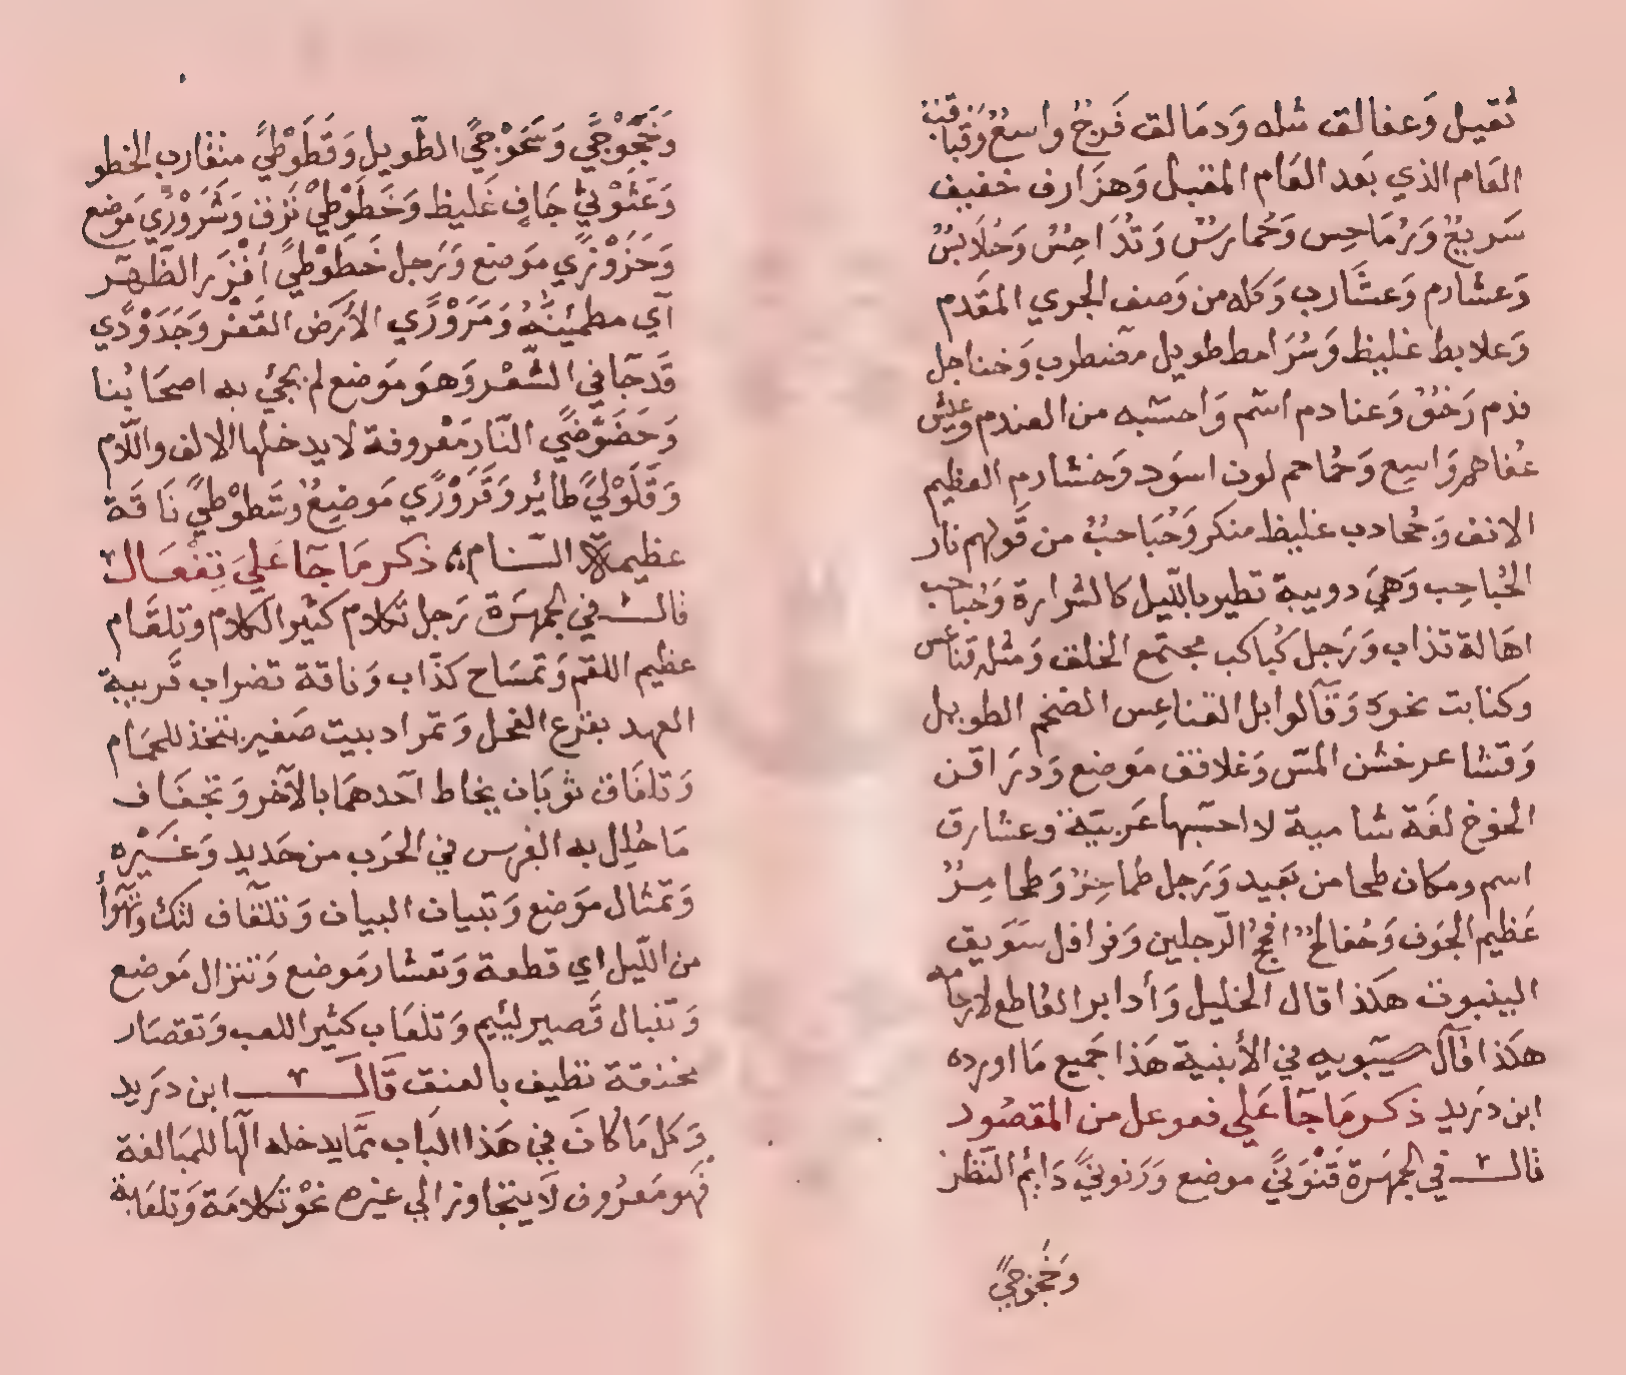 ثقيل وَعفالق مثله وَدمَالق فَرجٌ واسعٌ وَقباقب
العَام الذي بَعد العَام المقبل وَهزَارف خفيف
سَريعٌ وَرُمَاحِس وَحُمارسٌ وَقُدَاحِسٌ وَحُلَابسٌ
وَعشارم وَعشَارب وَكله من وَصف الجري المقَدم
وَعلابط غليظ وَسُرَامط طويل مضطرب وَخناجل
فدم رَخوٌ وَعنادم اسم وَاحسَبه من العندم وعيش
عُفاهم وَاسِع وَحُماحم لون اسوَد وَخشارم العظيم
الانف وَجُحادب غليظ منكر وَحُبَاحبٌ من قَولهم نار
الحُباحِب وَهيَ دويبة تطير بالليل كالشرارة وَحُباحب
اهَالة تذاب وَرَجل كُباكب مجتمع الخلق وَمثله قناعس
وكنابت نحوه وَقالوا بل القناعِس الضخم الطويل
وَقشاعر خشن المسّ وَغلافق مَوضع وَدرَاقن
الخوخ لغَة شامية لا احسَبها عَربيّة وعشارق
اسم ومكان طحامن بَعيد وَرَجل طُماحِرٌ وَطحامِرٌ
عَظيم الجَوف وَحُفالجٌ افجُ الرّجلين وَفرافل سَوَيق
الينبوت هكذا قال الخليل وَأدابر القاطع لارحامه
هكَذا قَال سيبويه في الأبنية هَذا جَميع مَا اورده
ابن دَريد ذكر مَا جَآ عَلي فعوعل من المقصُود
قال في الجمهَرة قَنَوْنيً موضع وَرَنونيً دَايم النَظر
وَخَجَوجيً
وَخَجَوْجيً وَشَجَوْجيً الطّويل وَقَطَوْطيً متقارب الخطو
وَعَثَوْثيً جَافٍ غَليظ وَخَطَوْطيً نَزق وَشَرَوْرَي مَوضع
وَحَزَوْزَي مَوضع وَرَجل خَطَوْطيً أفْزَر الظّهر
آي مطمَئِنّهُ وَمَرَوْرَي الأرَض القَفْر وَجَدَوْدَي
قَد جَآ في الشّعْر وَهوَ مَوضع لم يجئ به اصحَابُنا
وَحَضَوْضَي النّار مَعْروفة لا يدخلها الالف واللّام
وَقَلَوْليً طائر وَقَرَوْرَي مَوضِعٌ وشَطَوْطيً نَاقَة
عظيمة السّنام ذكر مَا جَآ عَليَ تِفْعَال
قال في الجمهَرة رَجل تكلام كثير الكلام وتلقَام
عظيم اللقم وَتمسَاح كذّاب وَناقة تضراب قَريبة
العهد بقرع الفحل وَتمراد بيت صَغير يتخذ للحمَام
وَتلفَاق ثوبَان يخاط احَدهمَا بالآخر وَتجفَاف
مَا جُلِل به الفرس في الحَرب من حَديد وَغَيْره
وَتمثال موَضع وَتبيان البيان وَتلقآف لتك وَتهوأ
من اللّيل اي قطعة وَتعشار مَوضع وَتنزال مَوضع
وَتنبال قَصير لئيم وَتلعَاب كثير اللعب وَتقصَار
مخنقة تطيف بالعنق قَال ابن دَريد
وَكل مَا كانَ في هَذا البَاب ممَّا يدخله الهَا للمبَالغة
فَهو مَعرُوف لَا يتجاوز الي غيره نحْو تكلامَة وَتلعَابة